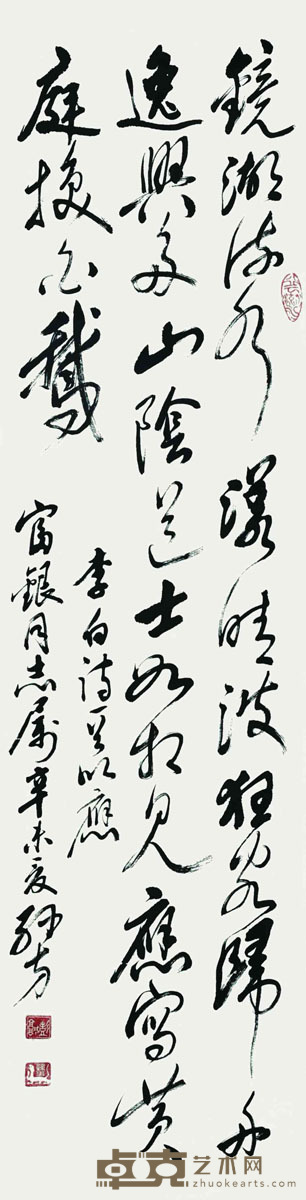 鏡湖流水漾晴波狂客歸舟
逸興多山陰道士如相見應寫黃
庭換白鵝
李白詩一首以應
富銀同志屬辛未夏
卓克艺术网
zhuokearts.com